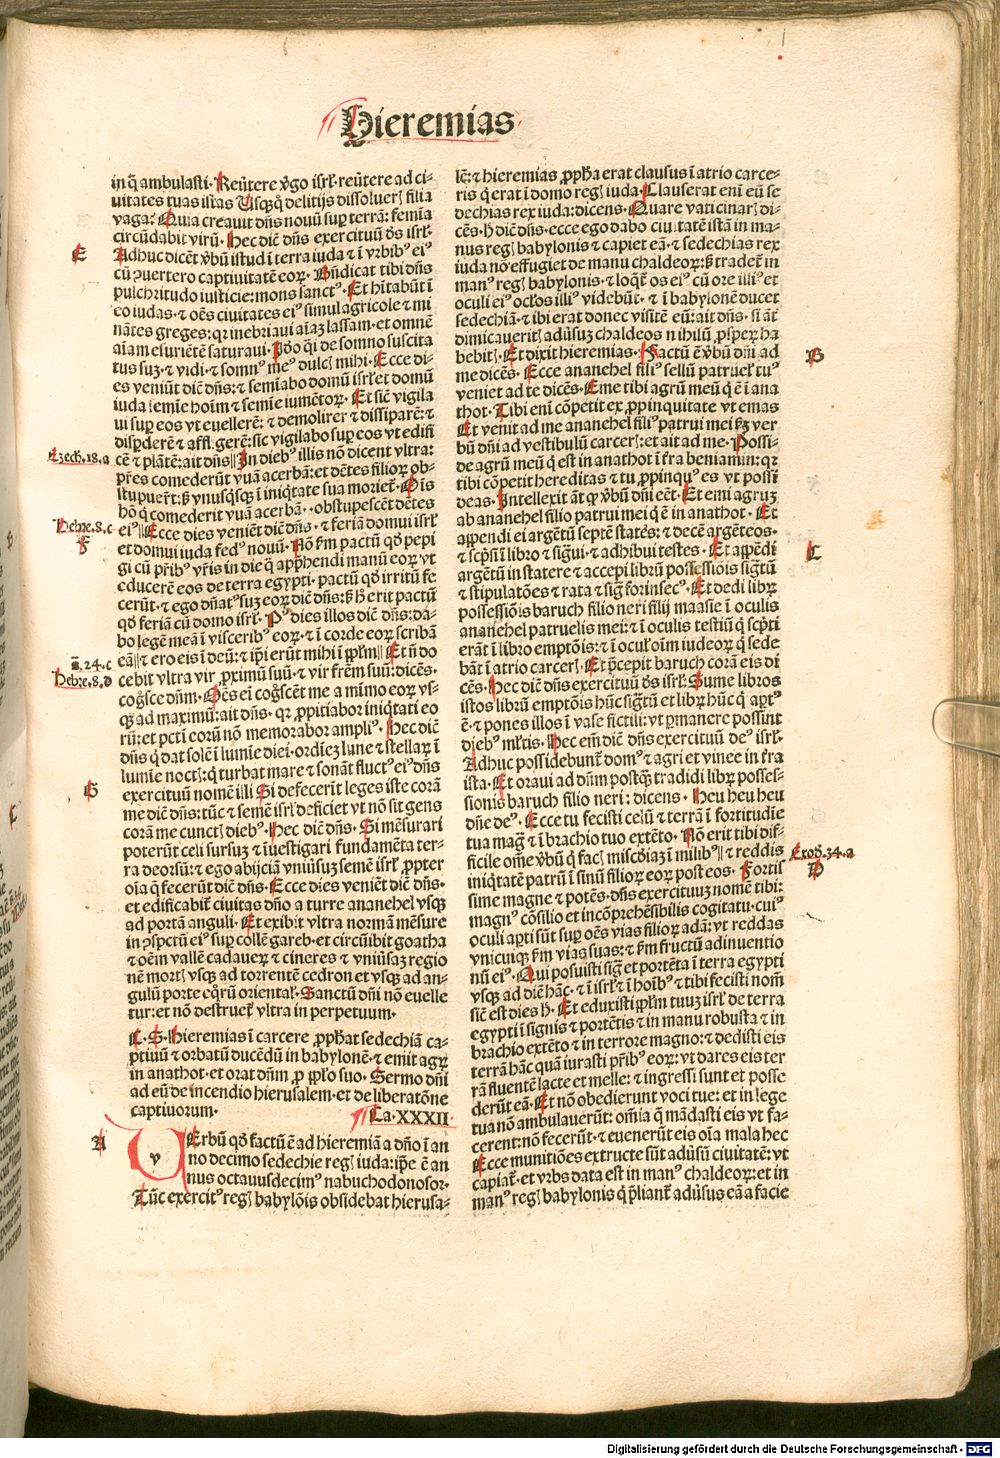 Hieremias
in q̄ ambulasti. Reṽtere ṽgo isrl̄. reṽtere ad ci-
uitates tuas istas Usq̄q̄ delitijs dissolueris filia
vaga? Quia creauit dn̄s nouū sup̲ terrā: femīa
circūdabit virū. Hec dic̄ dn̄s exercituū d̄s isrl̄.
E
Adhuc dicēt v̄bū istud ī terra iuda ⁊ ī vrbibꝰ eiꝰ
cū ꝯuertero captiuitatē eoꝝ. Bn̄dicat tibi dn̄s
pulchritudo iusticie: mons sanctꝰ. Et hītabūt ī
eo iudas. ⁊ oēs ciuitates eiꝰ simul agricole ⁊ mi
nātes greges: qꝛ inebriaui aīaʒ lassam. et omnē
aīam esuriētē saturaui. Iō̄ q̄i de somno suscita
tus suʒ. ⁊ vidi. ⁊ somnꝰ meꝰ dulcis mihi. Ecce di-
es veniūt dic̄ dn̄s: ⁊ semīabo domū isrl̄ et domū
iuda semīe hoīm ⁊ semīe iumētoꝝ. Et sic̄ vigila
ui sup̲ eos vt euellerē: ⁊ demolirer ⁊ dissiparē: ⁊
disp̲derē ⁊ affligerē: sic vigilabo sup̲ eos vt edifi
Ezech. 18. a
cē ⁊ plātē: ait dn̄s|| In diebꝰ illis nō dicent vltra:
pr̄es comederūt vuā acerbā: et dētes filioꝝ ob-
stupuer̄t: sʒ vnusq̄sq̄ ī iniq̄tate sua moriet̄. Oīs
hō q̄ comederit vuā acerbā. obstupescēt dētes
Hebre. 8. c
eiꝰ|| Ecce dies veniēt dic̄ dn̄s. ⁊ feriā domui isrl̄
F
et domui iuda fedꝰ nouū. Nō s̄m pactū qd̄ pepi
gi cū pr̄ibꝰ vr̄is in die q̄ app̲hendi manū eoꝝ vt
educerē eos de terra egypti. pactū qd̄ irritū fe
cerūt. ⁊ ego dn̄atꝰ suʒ eoꝝ dic̄ dn̄s: sʒ h̄ erit pactū
qd̄ feriā cū domo isrl̄. Pꝰ dies illos dic̄ dn̄s: da-
bo legē meā ī visceribꝰ eoꝝ. ⁊ ī corde eoꝝ scribā
a. 24. c
eā|| ⁊ ero eis ī deū: ⁊ ip̄i erūt mihi ī pplm̄|| Et n̄ do
Hebre. 8. d
cebit vltra vir proximū suū. ⁊ vir fr̄em suū: dicēs.
cogsce dn̄m. Oēs ei cogscēt me a mīmo eoꝝ vs-
q̄ ad maximū: ait dn̄s. qꝛ propitiabor iniq̄tati eo
rū: et pctī corū nō memorabor ampliꝰ. Hec dic̄
dn̄s q̄ dat solē ī lumīe diei. ordīeʒ lune ⁊ stellaꝝ ī
lumīe noctis: q̄ turbat mare ⁊ sonāt fluctꝰ eiꝰ dn̄s
G
exercituū nomē illi Si defecerīt leges iste corā
me dic̄ dn̄s: tūc ⁊ semē isrl̄ deficiet vt nō sit gens
corā me cunctis diebꝰ. Hec dic̄ dn̄s. Si mēsurari
poterūt celi sursuʒ ⁊ īuestigari fundamēta ter-
ra deorsū: ⁊ ego abijciā vniūsuʒ semē isrl̄ propter
oīa q̄ fecerūt dic̄ dn̄s. Ecce dies veniēt dic̄ dn̄s.
et edificabit̄ ciuitas dn̄o a turre ananehel vsq̄
ad portā anguli. Et exibit vltra normā mēsure
in ꝯspctū eiꝰ sup̲ collē gareb. et circūibit goatha
⁊ oēm vallē cadaueꝝ ⁊ cineres ⁊ vniūsaʒ regio
nē mortis vsq̄ ad torrentē cedron et vsq̄ ad an-
gulū porte eq̄rū orientaľ. Sanctū dn̄i nō euelle
tur: et nō destruet̄ vltra in perpetuum.
C. S. Hieremias ī carcere prophat sedechiā ca-
ptiuū ⁊ orbatū ducēdū in babylonē. ⁊ emit agꝝ
in anathot. et orat dn̄m pro pplo suo. Sermo dn̄i
ad eū de incendio hierusalem. et de liberatōne
captiuorum.
Ca. XXXII
A
v
Erbū qd̄ factū ē ad hieremiā a dn̄o ī an
no decimo sedechie regis iuda: ip̄e ē an
nus octauusdecimꝰ nabuchodonosor.
Tūc exercitꝰ regis babylōis obsidebat hierusa-
lē: ⁊ hieremias propha erat clausus ī atrio carce-
ris q̄ erat ī domo regis iuda. Clauserat enī eū se
dechias rex iuda: dicens. Quare vaticinaris di-
cēs. h̄ dic̄ dn̄s. ecce ego dabo ciuitatē istā in ma-
nus regis babylonis ⁊ capiet eā. ⁊ sedechias rex
iuda nō effugiet de manu chaldeoꝝ: sʒ tradet̄ in
manꝰ regis babylonis. ⁊ loq̄t̄ os eiꝰ cū ore illiꝰ et
oculi eiꝰ oc̄los illiꝰ videbūt. ⁊ ī babylonē ducet
sedechiā. ⁊ ibi erat donec visitē eū: ait dn̄s. si āt
dimicaueritis adūsuʒ chaldeos nihilū prosp̲er ha
bebitis. Et dixit hieremias. Factū ē v̄bū dn̄i ad
B
me dicēs. Ecce ananehel filiꝰ sellū patruel̄ tuꝰ
veniet ad te dicēs. Eme tibi agrū meū q̄ ē ī ana
thot. Tibi enī cōpetit ex propinquitate vt emas
Et venit ad me ananehel filiꝰ patrui mei sʒ ver
bū dn̄i ad vestibulū carceris: et ait ad me. Possi-
de agrū meū q̄ est in anathot ī t̄ra beniamin: qꝛ
tibi cōpetit hereditas ⁊ tu propinquꝰ es vt possi
deas. Intellexit āt qꝛ v̄bū dn̄i eēt. Et emi agruʒ
ab ananehel filio patrui mei q̄ ē in anathot. Et
appendi ei argētū septē stateres: ⁊ decē argēteos.
⁊ scp̄si ī libro ⁊ sig̃ui. ⁊ adhibui testes. Et appēdi
C
argētū in statere ⁊ accepi librū possessiōis sig̃tū
⁊ stipulatōes ⁊ rata ⁊ sig̃ forinsecꝰ. Et dedi librꝫ
possessiōis baruch filio neri filij maasie ī oculis
ananehel patruelis mei: ⁊ ī oculis testiū q̄ scp̄ti
erāt ī libro emptōis: ⁊ ī oculꝰ oīm iudeoꝝ q̄ sede
bāt ī atrio carceris. Et p̄cepit baruch corā eis di
cēs. Hec dic̄ dn̄s exercituū d̄s isrl̄: Sume libros
istos librū emptōis hūc sig̃tū et librꝫ hūc q̄ aptꝰ
ē. ⁊ pones illos ī vase fictili: vt p̲manere possint
diebꝰ ml̄tis. Hec em̄ dic̄ dn̄s exercituū deꝰ isrl̄.
Adhuc possidebunt̄ domꝰ ⁊ agri et vinee in t̄ra
ista. Et oraui ad dn̄m postq̄ʒ tradidi librꝫ posses-
sionis baruch filio neri: dicens. Heu heu heu
dn̄e deꝰ. Ecce tu fecisti celū ⁊ terrā ī fortitudīe
tua mag̃ ⁊ ī brachio tuo extēto. Nō erit tibi dif-
ficile om̄e v̄bū q̄ facis misc̄diaʒ ī milibꝰ|| ⁊ reddis
Exod. 34. a
iniq̄tatē patrū ī sinū filioꝝ eoꝝ post eos. Fortis
D
sime magne ⁊ potēs. dn̄s exercituuʒ nomē tibi:
magnꝰ cōsilio et incōprehēsibilis cogitatu. cuiꝰ
oculi ap̲ti sūt sup̲ oēs vias filioꝝ adā: vt reddas
vnicuiq̄ s̄m vias suas: ⁊ s̄m fructū adinuentio
nū eiꝰ. Qui posuisti sig̃ et portēta ī terra egypti
vsq̄ ad diē hāc. ⁊ ī isrl̄ ⁊ ī hoībꝰ ⁊ tibi fecisti nom̄
sic̄ est dies h̄. Et eduxisti pplm̄ tuuʒ isrl̄ de terra
egypti ī signis ⁊ portētis ⁊ in manu robusta ⁊ in
brachio extēto ⁊ in terrore magno: ⁊ dedisti eis
terrā hāc quā iurasti pr̄ibꝰ eoꝝ: vt dares eis ter
rā fluentē lacte et melle: ⁊ ingressi sunt et posse
derūt eā. Et nō obedierunt voci tue: et in lege
tua nō ambulauerūt: om̄ia q̄ mādasti eis vt fa-
cerent: nō fecerūt. ⁊ euenerūt eis oīa mala hec
Ecce munitiōes extructe sūt adūsū ciuitatē: vt
capiat̄. et vrbs data est in manꝰ chaldeoꝝ: et in
manꝰ regis babylonis q̄ p̄liant̄ adūsus eā a facie
Digitalisierung gefördert durch die Deutsche Forschungsgemeinschaft - DFG